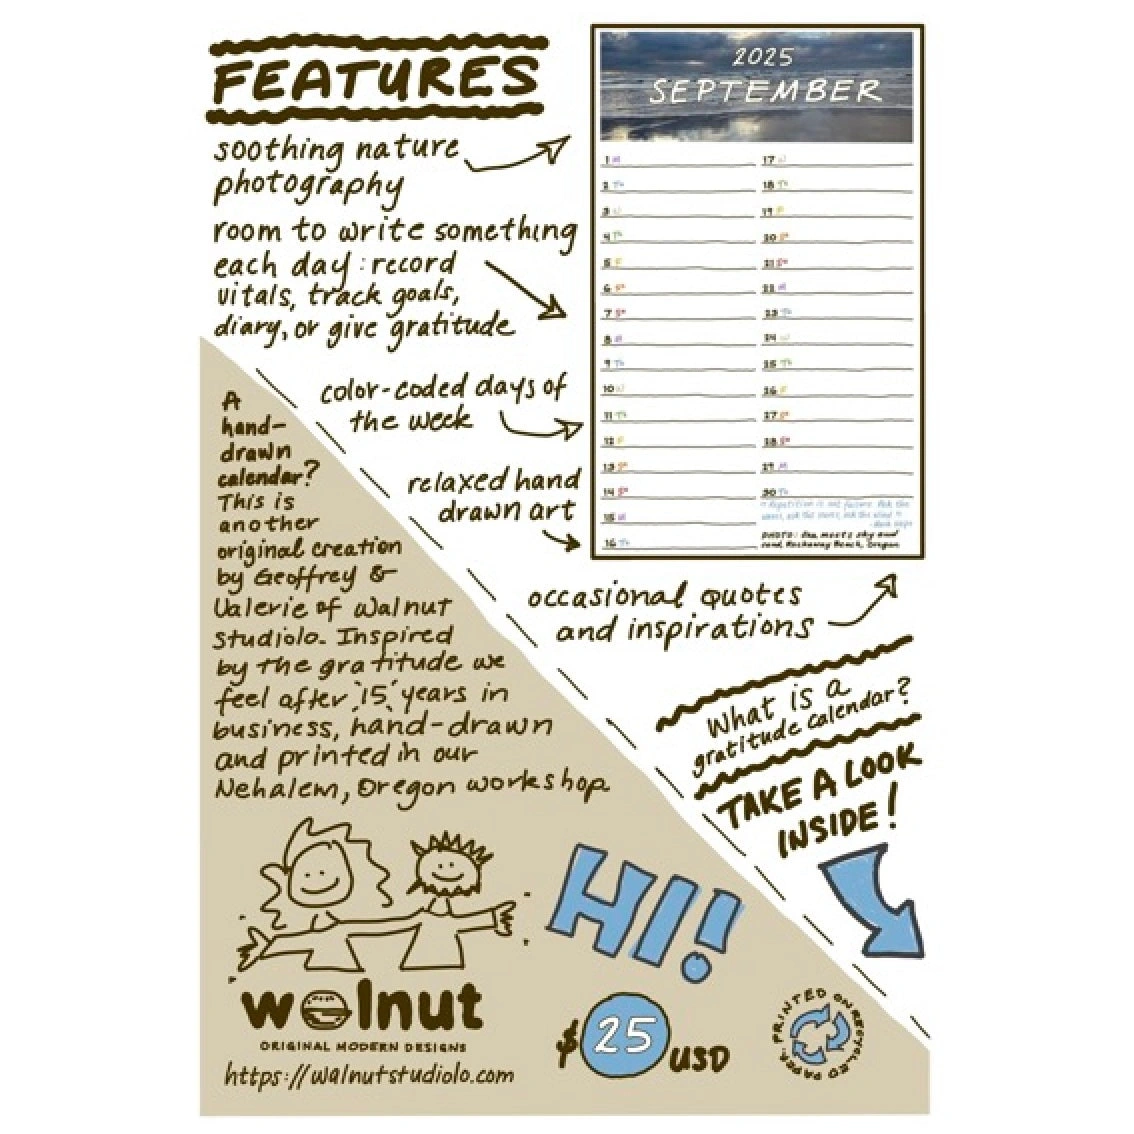 FEATURES
soothing nature
photography
room to write something
each day: record
vitals, track goals,
diary, or give gratitude
color-coded days of
the week
relaxed hand
drawn art
occasional quotes
and inspirations
2025
SEPTEMBER
1 M
2 Tu
3 W
4 Th
5 F
6 Sa
7 Su
8 M
9 Tu
10 W
11 Th
12 F
13 Sa
14 Su
15 M
16 Tu
17 W
18 Th
19 F
20 Sa
21 Su
22 M
23 Tu
24 W
25 Th
26 F
27 Sa
28 Su
29 M
30 Tu
"Repetition is not failure. Ask the
waves, ask the leaves, ask the wind."
PHOTO: Sea meets sky and
sand, Rockaway Beach, Oregon
What is a
gratitude calendar?
TAKE A LOOK
INSIDE!
A
hand-
drawn
calendar?
This is
another
original creation
by Geoffrey &
Valerie of Walnut
Studiolo. Inspired
by the gratitude we
feel after '15' years in
business, hand-drawn
and printed in our
Nehalem, Oregon workshop
HI!
walnut
ORIGINAL MODERN DESIGNS
https://walnutstudiolo.com
$25 USD
PRINTED ON RECYCLED PAPER